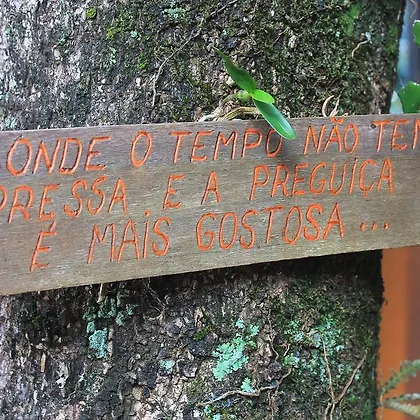 ONDE O TEMPO NÃO TEM
PRESSA E A PREGUIÇA
É MAIS GOSTOSA...